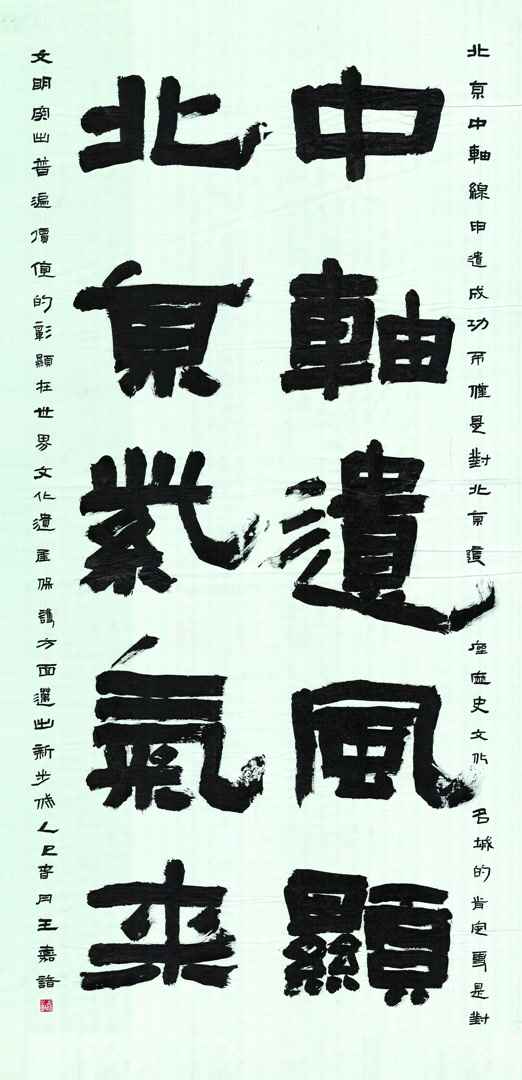 北京中軸線申遺成功不僅是對北京這座歷史文化名城的肯定更是對
中軸遺風顯
北京紫氣来
文明突出普遍價值的彰顯在世界文化遺產保護方面邁出新步伐乙巳月王嘉